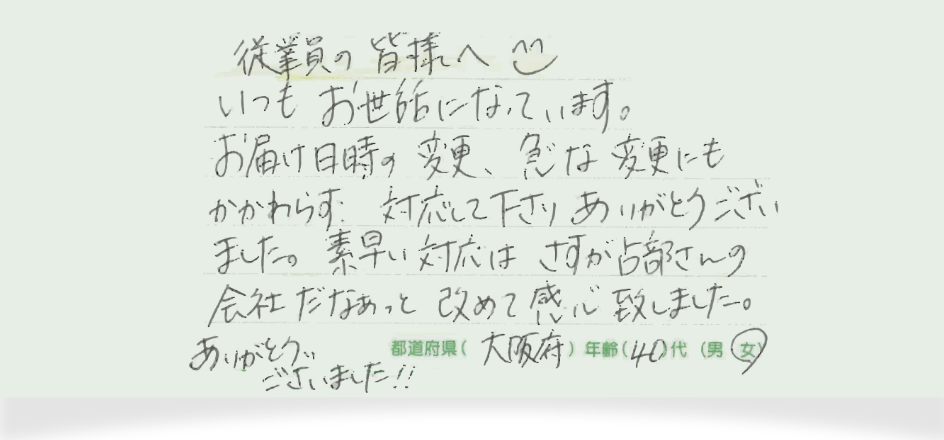 従業員の皆様へ
いつもお世話になっています。
お届け日時の変更、急な変更にも
かかわらず 対応して下さり ありがとうござい
ました。素早い対応は さすが占部さんの
会社だなぁっと 改めて感心致しました。
ありがとう
ございました!!
都道府県(大阪府)年齢(40)代(男 女)